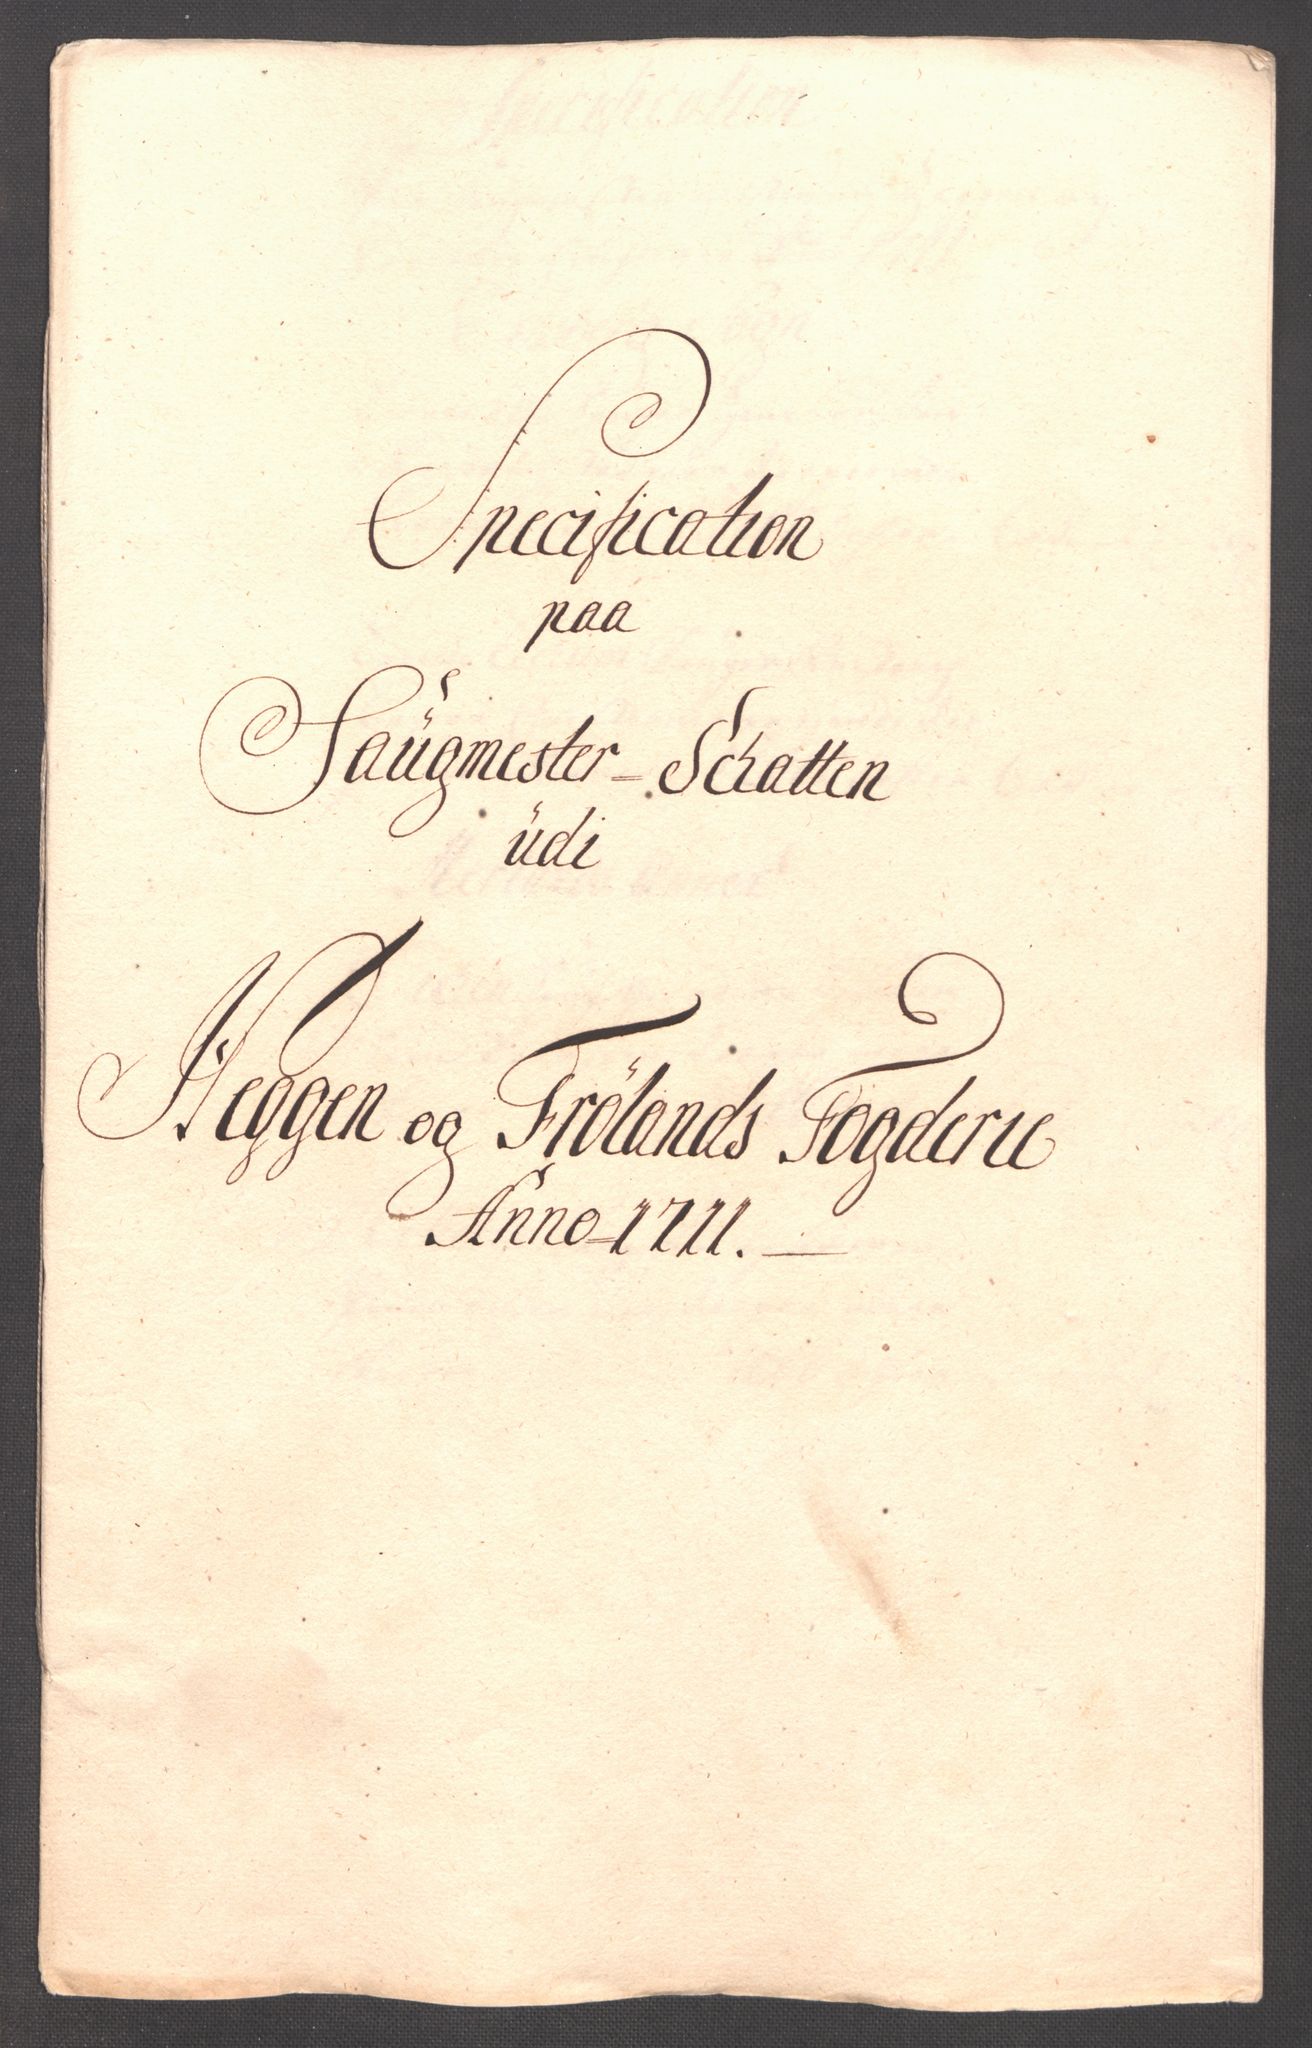 Specification
paa
Saügmester-Schatten
üdi
Heggen og Frölands Fogderie
Anno 1711.